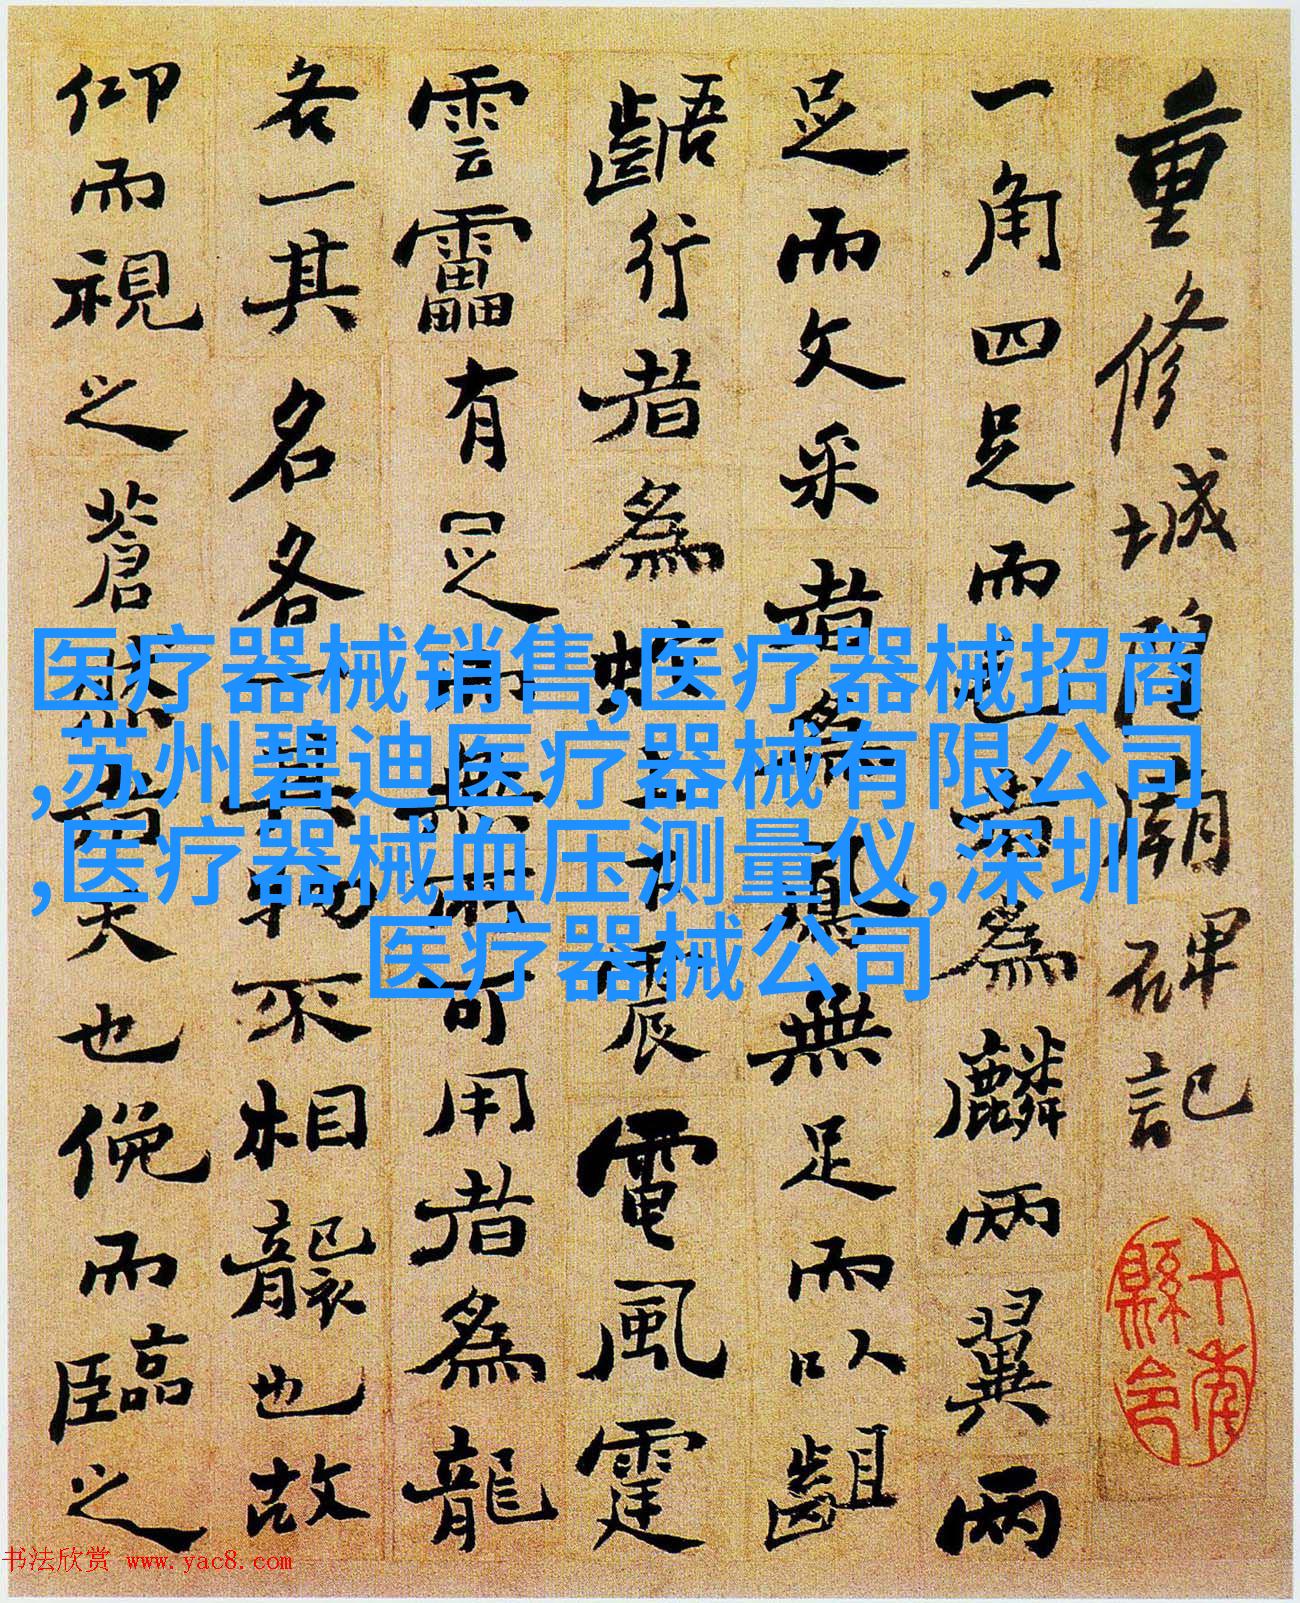 重修城隍廟碑記
一角四足而毛者為麟兩翼兩
足而文采者為鳳無足而以齟
齬行者為蛇上下震電風霆
雲靁有足而無所可用者為龍
各一其名各一其物不相襲也故
仰而視之蒼然者天也俛而臨之
医疗器械销售,医疗器械招商
,苏州碧迪医疗器械有限公司
,医疗器械血压测量仪,深圳
医疗器械公司
书法欣赏 www.yac8.com